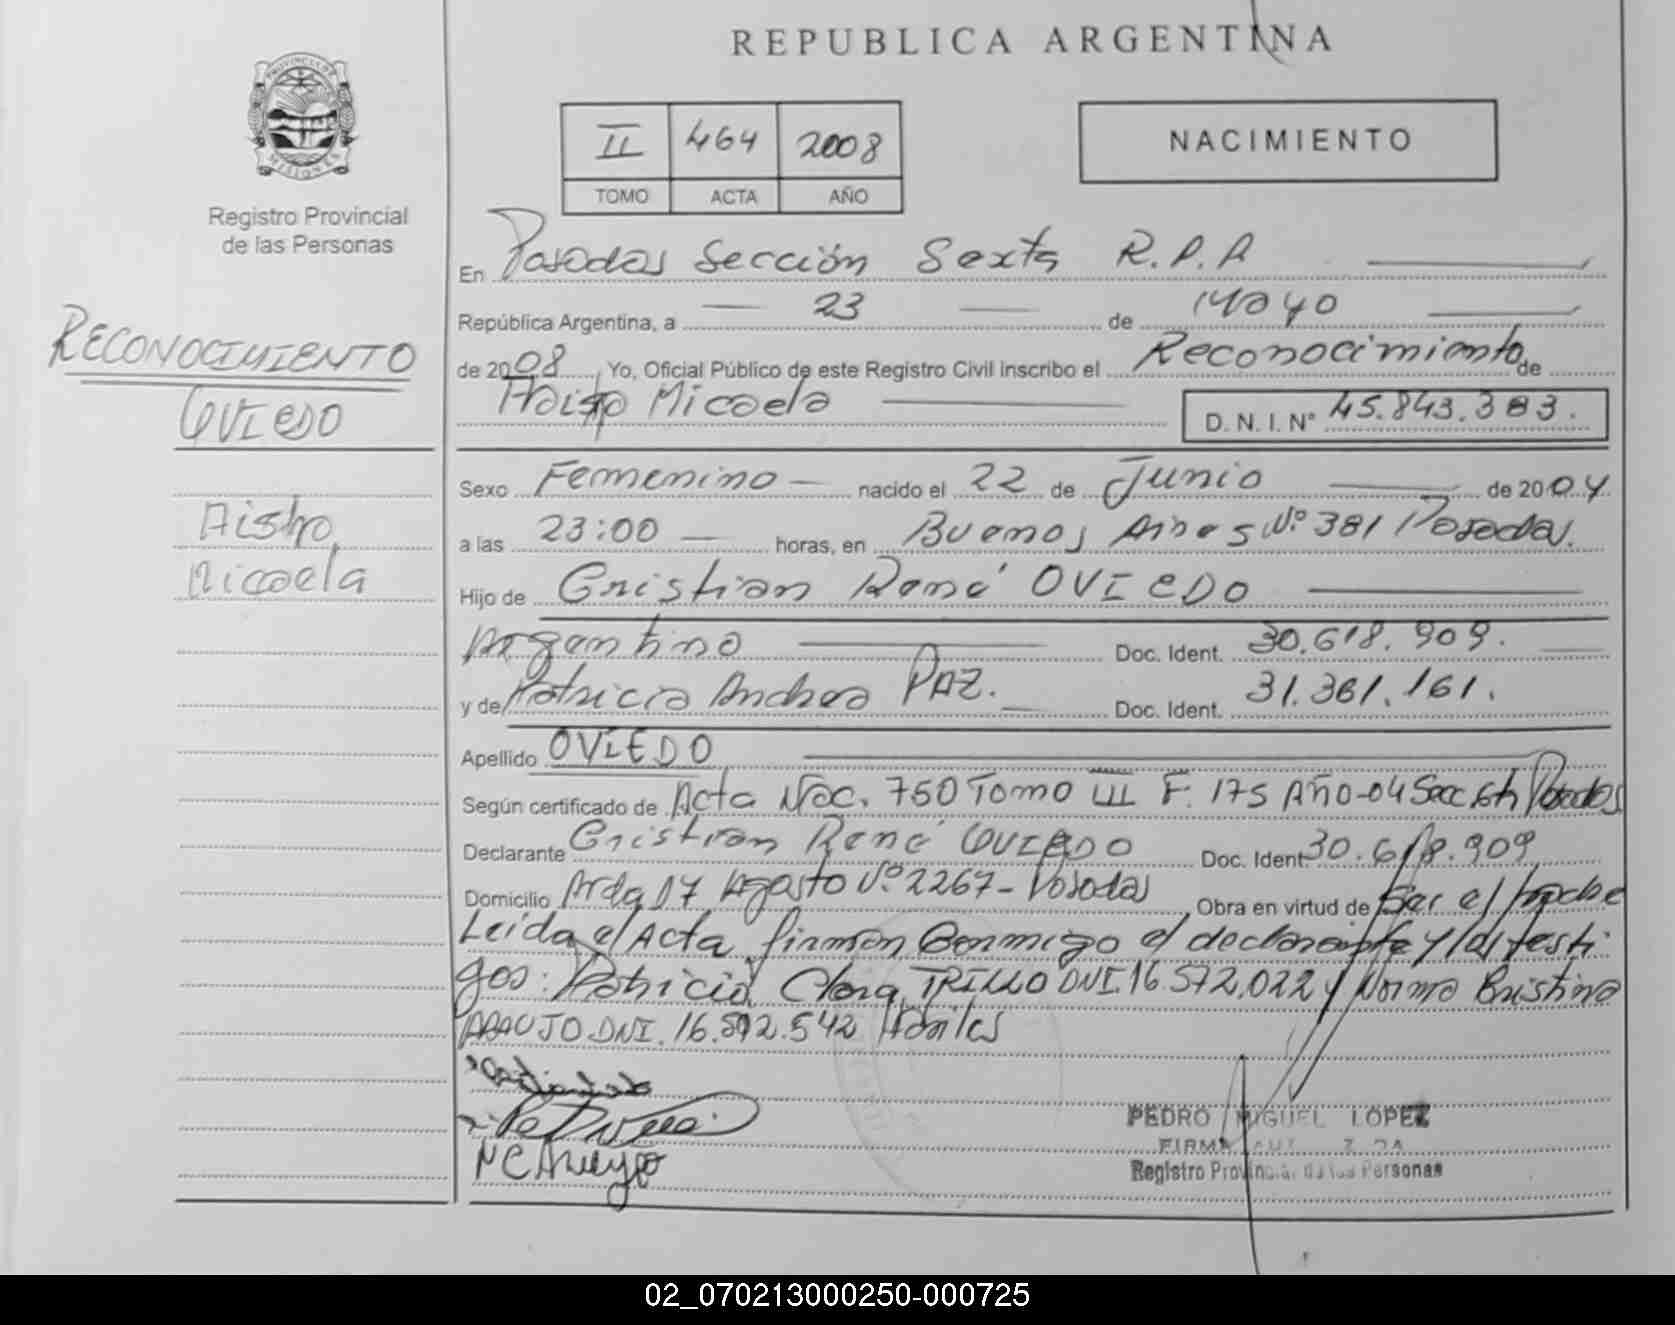 REPUBLICA ARGENTINA
PROVINCIA DE MISIONES
Registro Provincial
de las Personas
II 464 2008
TOMO ACTA AÑO
NACIMIENTO
RECONOCIMIENTO
OVIEDO
Micaela
En Posadas Sección Sexta R.P.A
República Argentina, a 23 de Mayo
de 2008, Yo, Oficial Público de este Registro Civil inscribo el Reconocimiento de
Micaela D. N. I. Nº 45.843.383.
Sexo Femenino nacido el 22 de Junio de 2004
a las 23:00 horas, en Buenos Aires Nº 381 Posadas.
Hijo de Cristian René OVIEDO
Argentino Doc. Ident. 30.618.909.
y de Patricia Andrea PAZ. Doc. Ident. 31.361.161.
Apellido OVIEDO
Según certificado de Acta Nac. 750 Tomo III F. 175 Año-04 Secc 6ta Posadas
Declarante Cristian René OVIEDO Doc. Ident 30.618.909
Domicilio Avda 17 Agosto Nº 2267- Posadas Obra en virtud de Ser el padre
Leida el Acta firman Conmigo el declarante y los testi
gos: Patricia Clara TRILLO DNI. 16.572.022 y Norma Cristina
ARAUJO DNI. 16.592.542 Hábiles
PEDRO MIGUEL LOPEZ
FIRMA
Registro Provincial de las Personas
02_070213000250-000725